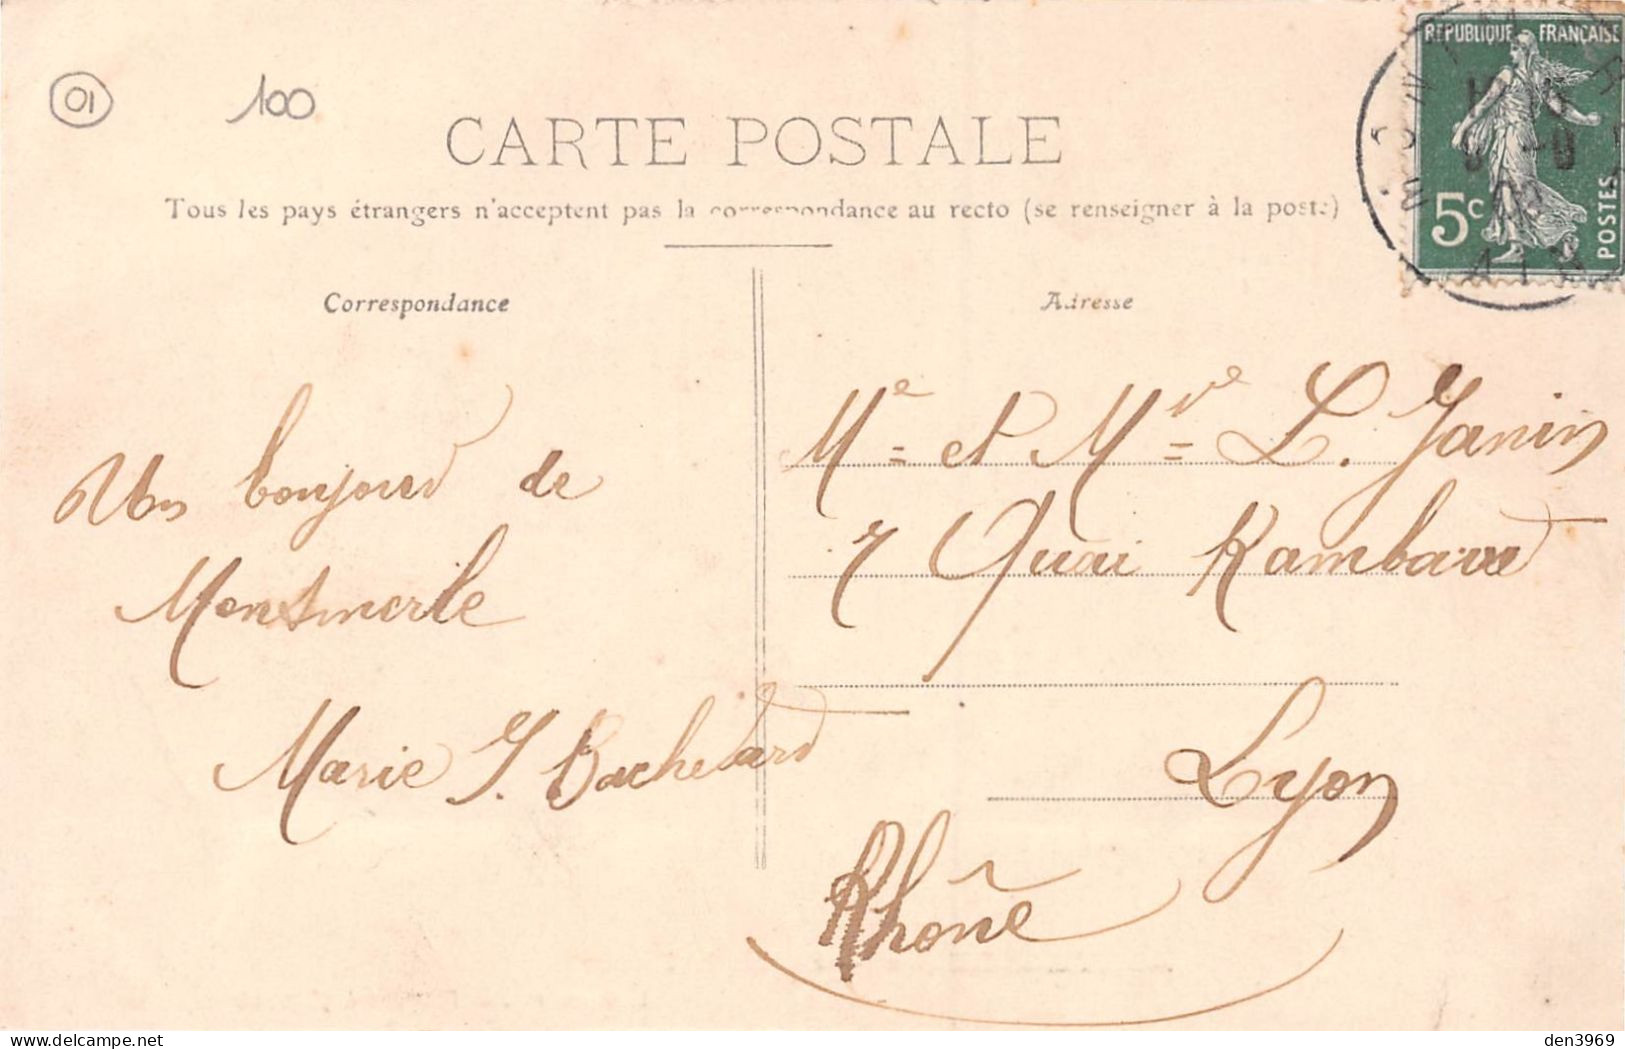 01 100
CARTE POSTALE
Tous les pays étrangers n'acceptent pas la correspondance au recto (se renseigner à la poste)
REPUBLIQUE FRANÇAISE
5c POSTES
AIN
Correspondance
Un bonjour de
Montmerle
Marie J. Bachelard
Adresse
Me et Mr L. Janin
7 Quai Rambaud
Lyon
Rhône
den3969